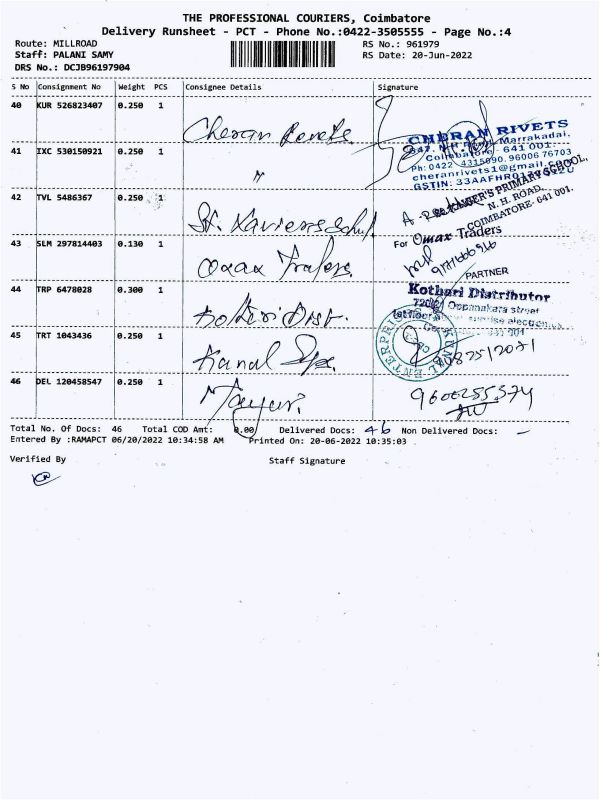 THE PROFESSIONAL COURIERS, Coimbatore
Delivery Runsheet - PCT - Phone No.:0422-3505555 - Page No.:4
Route: MILLROAD
RS No.: 961979
Staff: PALANI SAMY
RS Date: 20-Jun-2022
DRS No.: DCJB96197904
S No Consignment No Weight PCS Consignee Details Signature
40 KUR 526823407 0.250 1 Cheran Revets
CHERAN RIVETS
Marrakadai,
Coimbatore 641 001
41 IXC 530150921 0.250 1 "
Ph: 0422 4315090, 96006 76703
cheranrivets1@gmail.com
GSTIN: 33AAFHR
42 TVL 5486367 0.250 1 St. Xaviers
PRIMARY SCHOOL,
N. H. ROAD,
COIMBATORE- 641 001.
43 SLM 297814403 0.130 1 Omax Traders
For Omax Traders
PARTNER
44 TRP 6478028 0.300 1
Kothari Distributor
Oppanakara street
1st floor
45 TRT 1043436 0.250 1
ENTERPRI
46 DEL 120458547 0.250 1 Mayur.
9600255574
Total No. Of Docs: 46 Total COD Amt: 0.00 Delivered Docs: 46 Non Delivered Docs: -
Entered By :RAMAPCT 06/20/2022 10:34:58 AM Printed On: 20-06-2022 10:35:03
Verified By Staff Signature